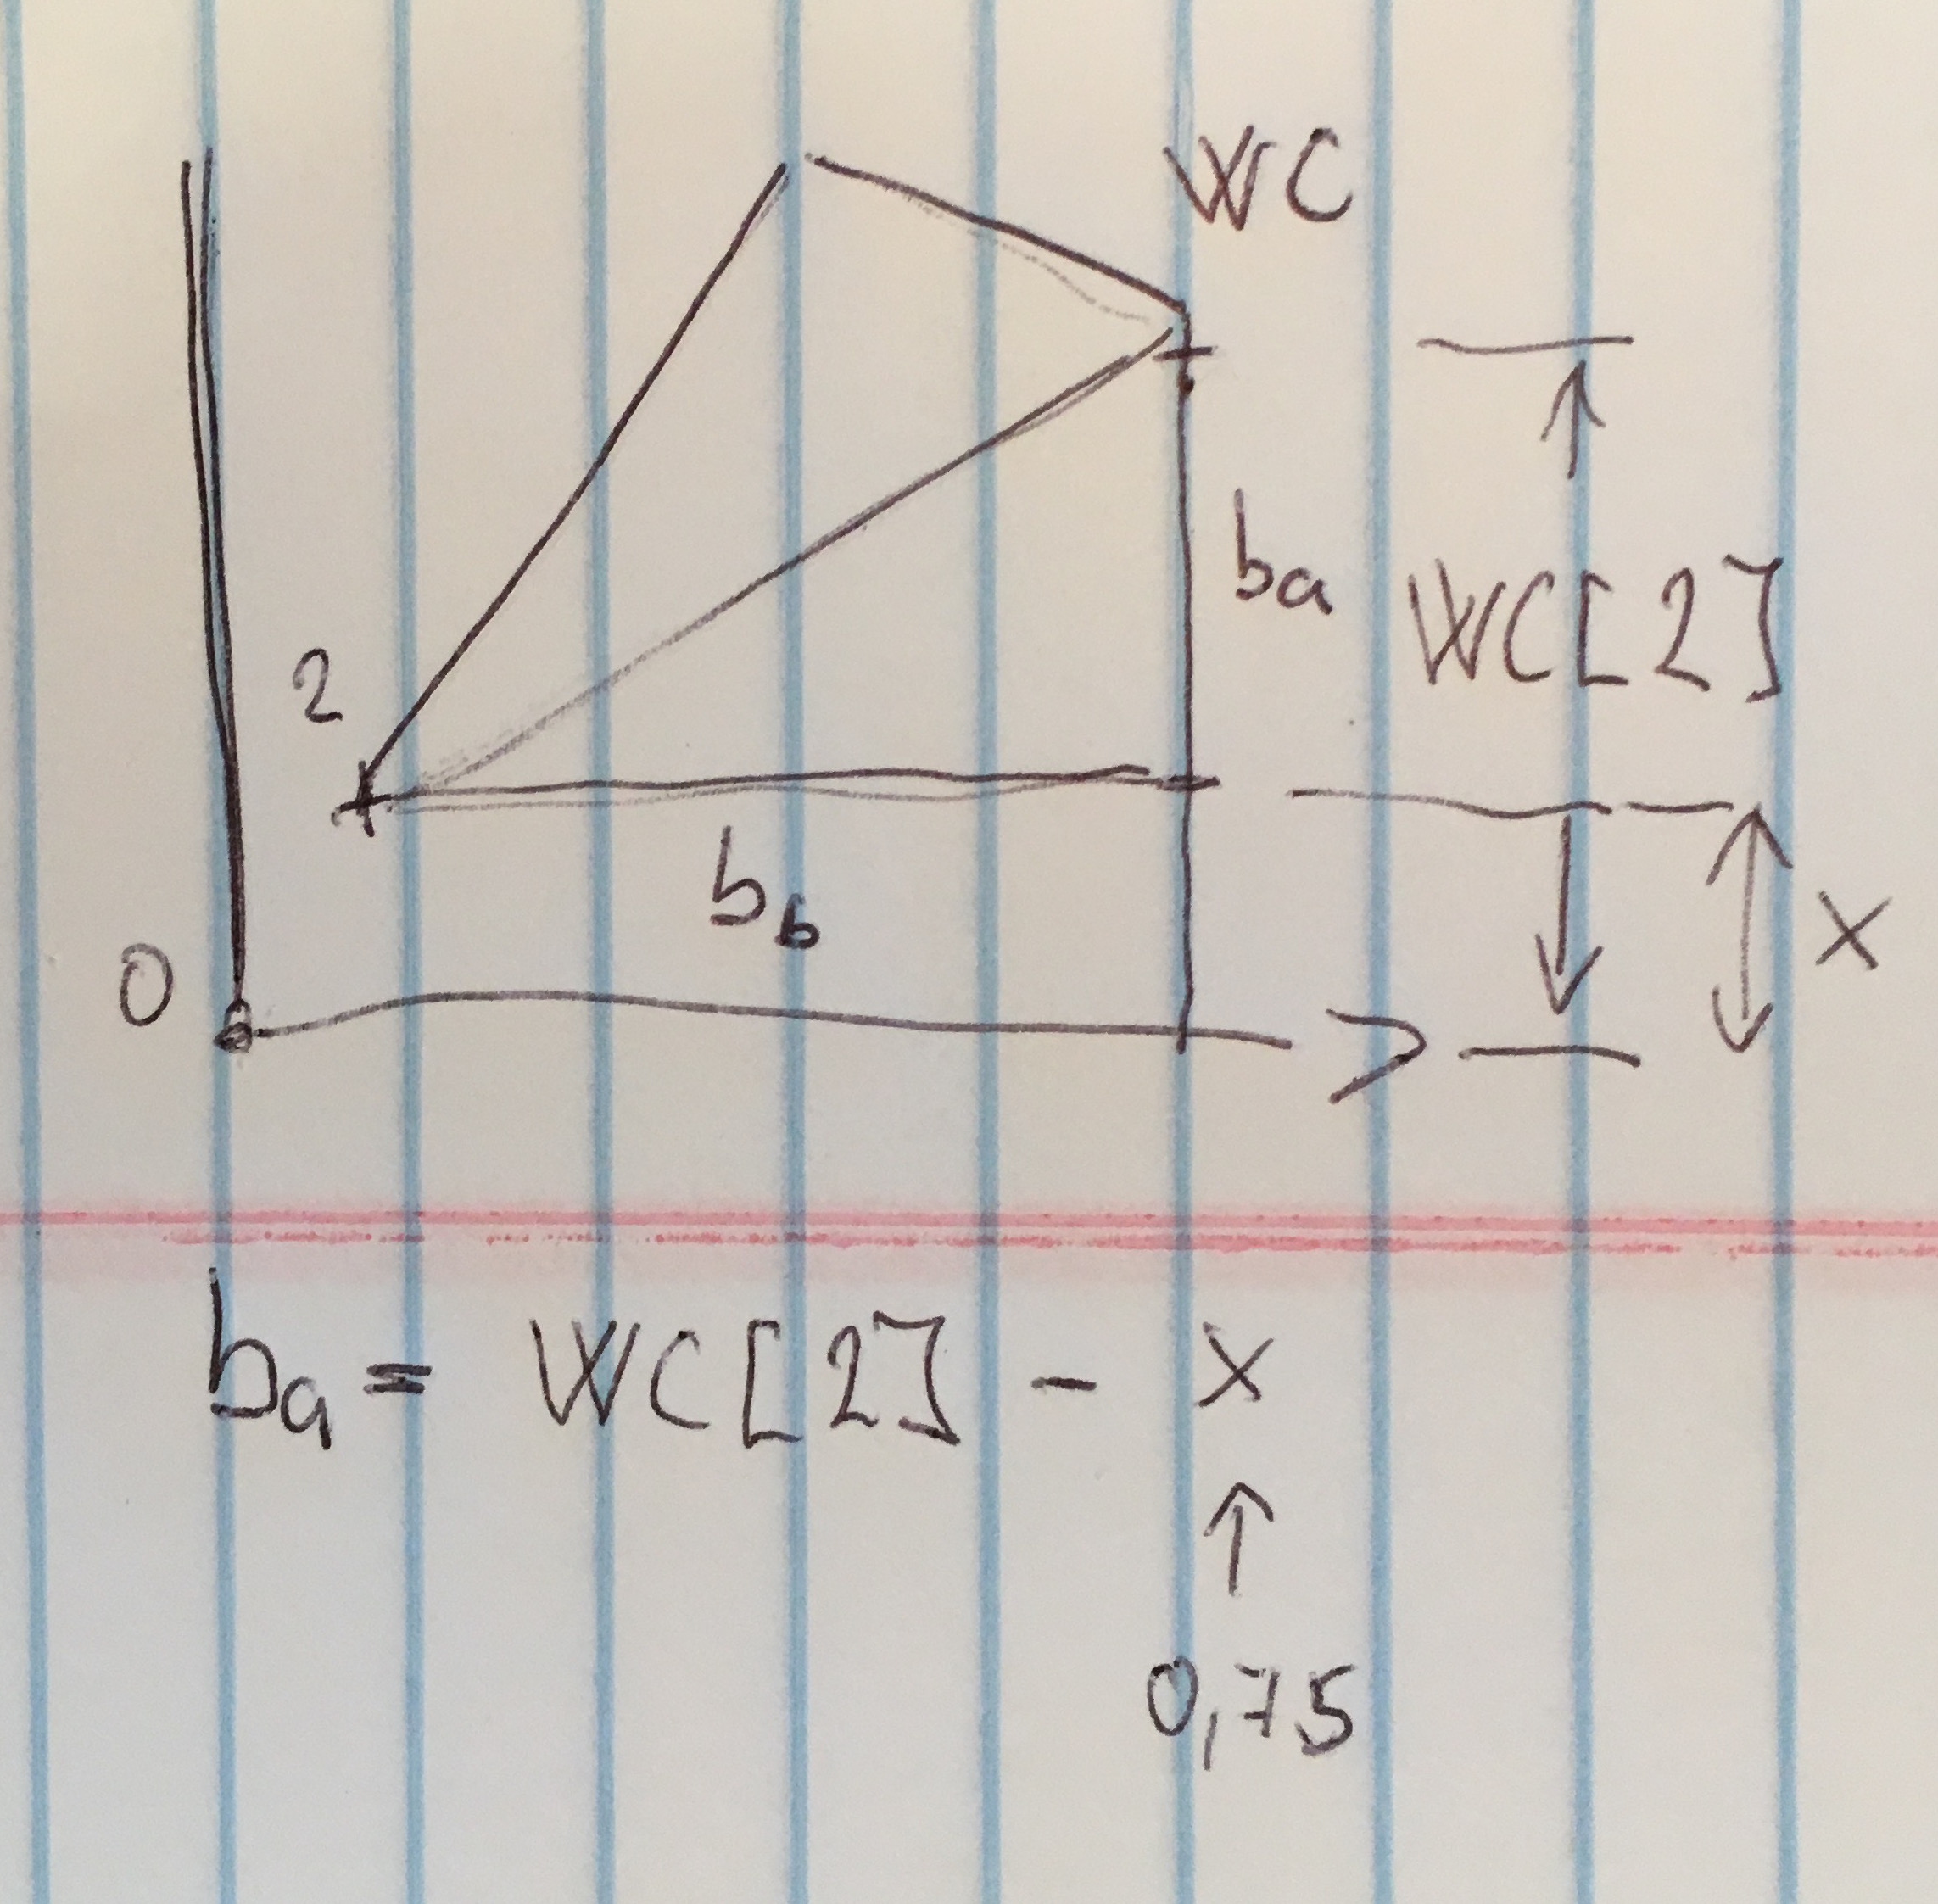 WC
ba
WC[2]
2
bb
x
0
ba = WC[2] - x
↑
0,75